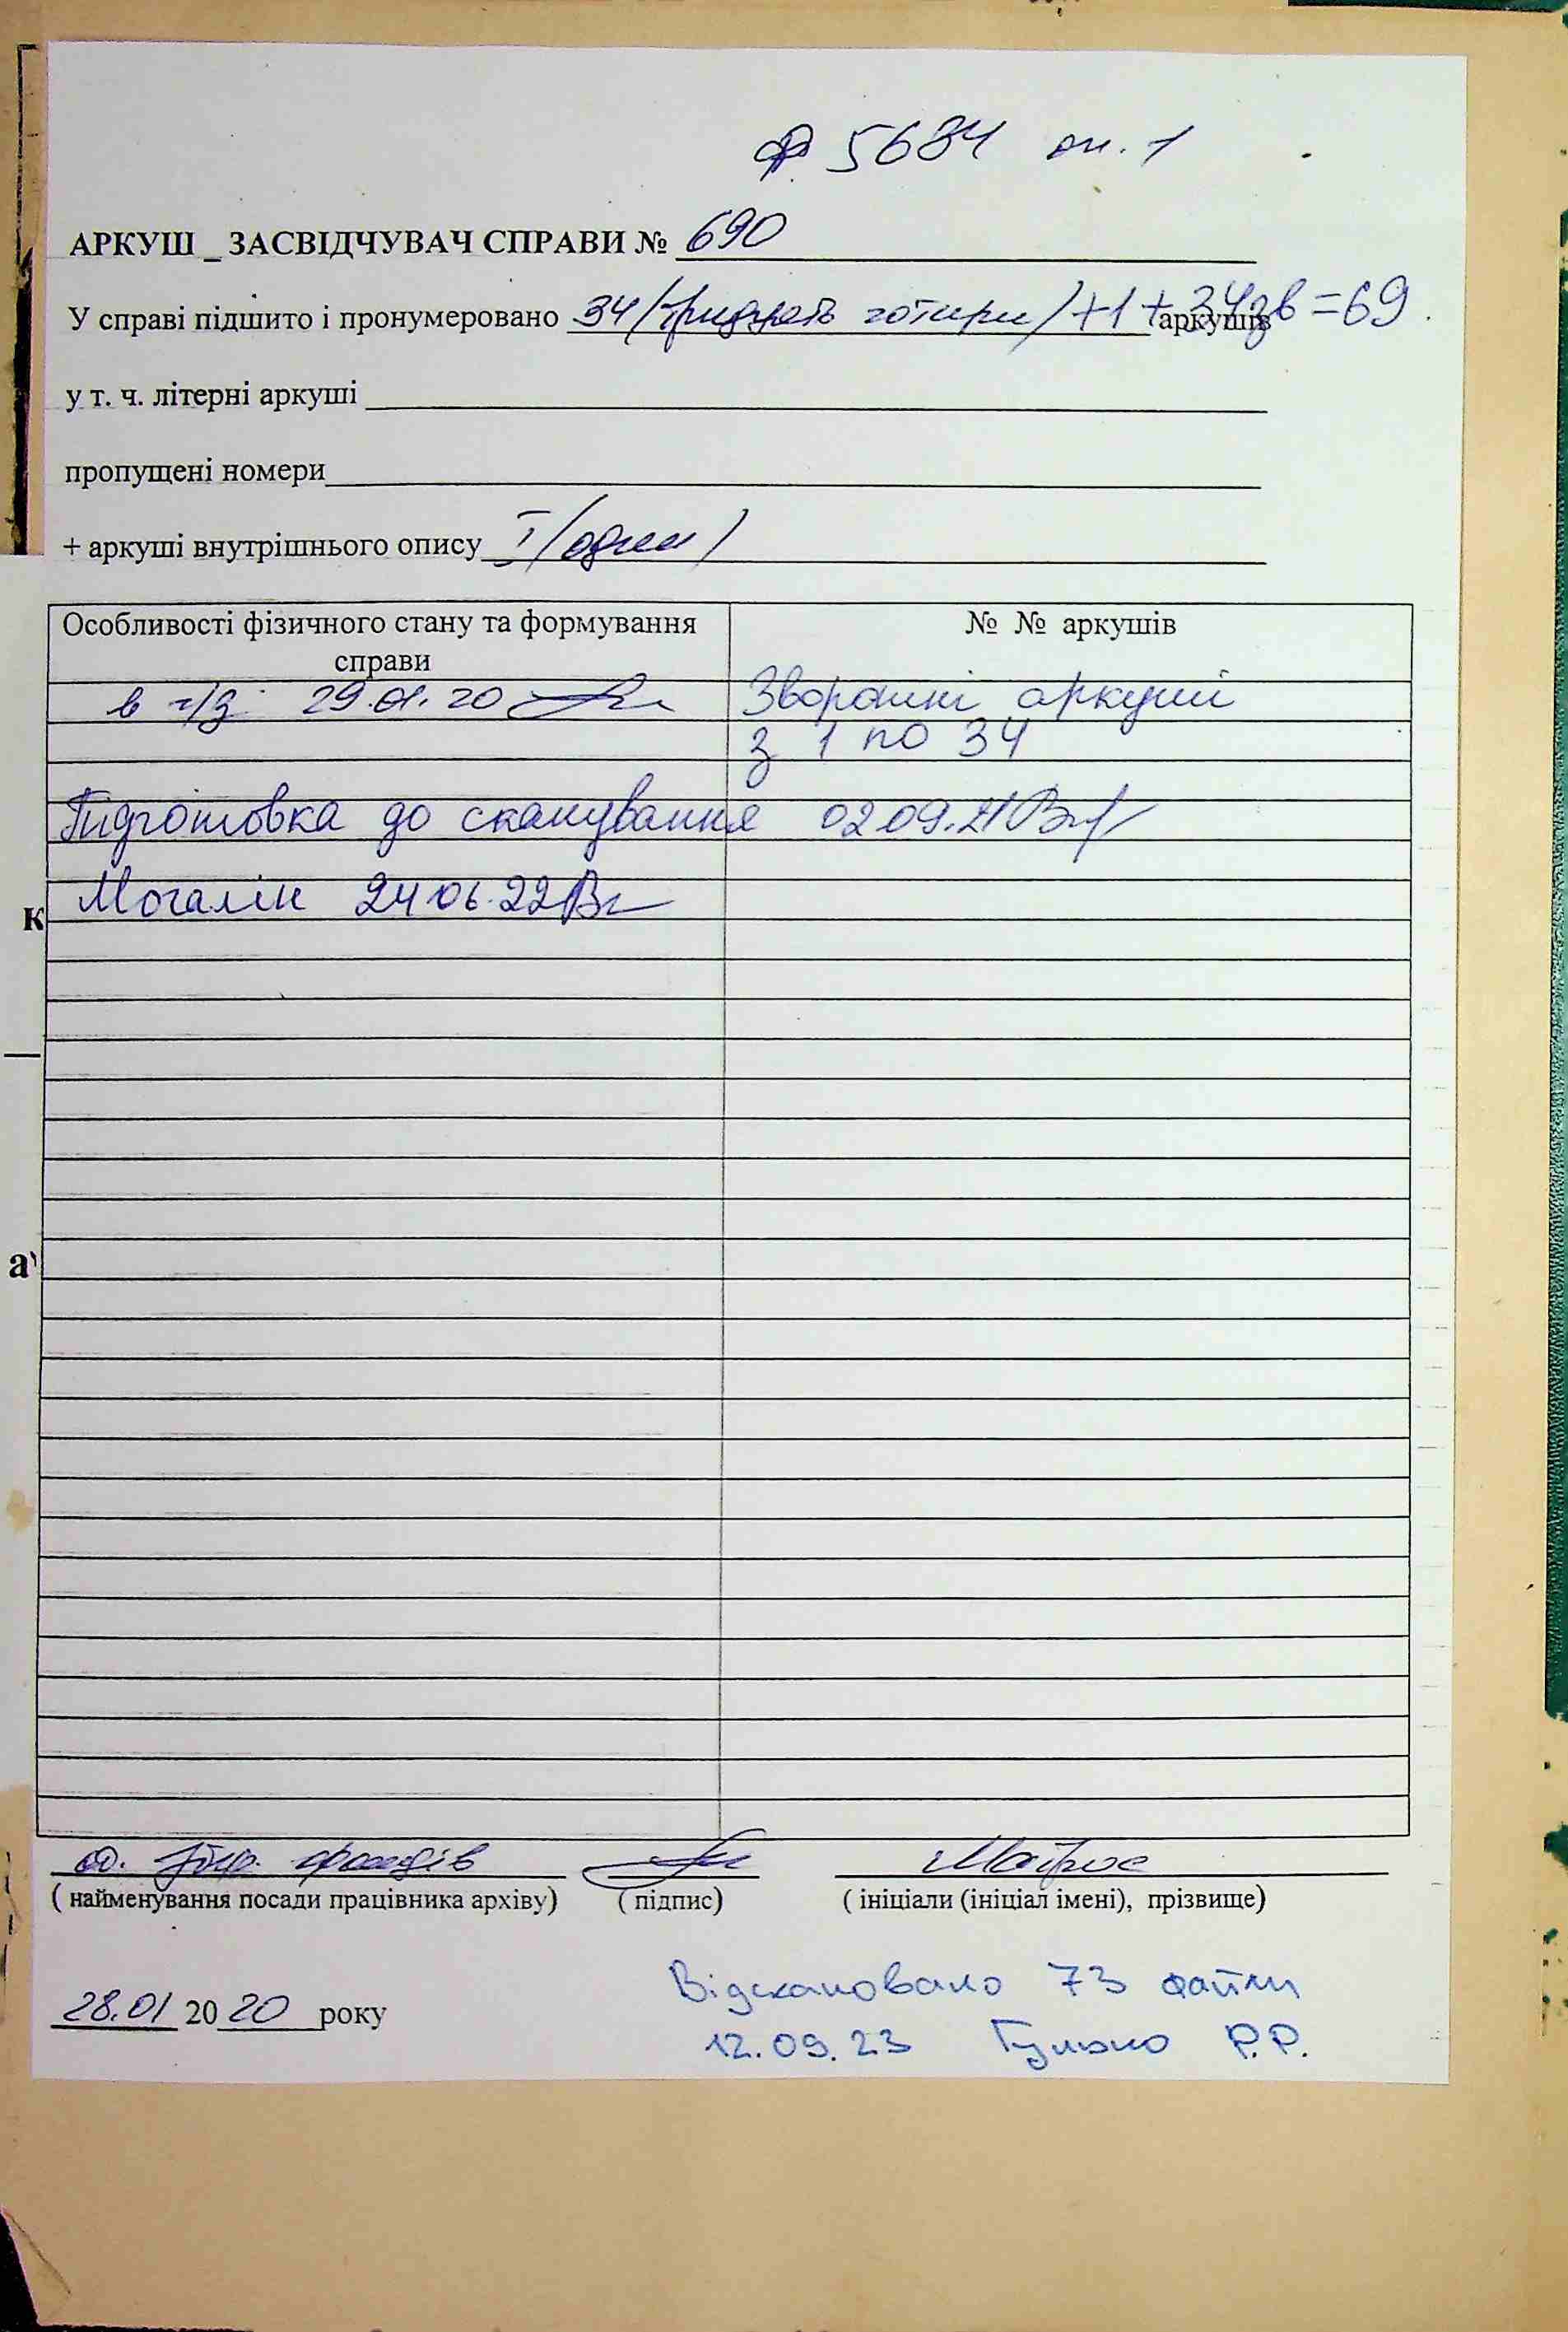 ф. 5684 оп. 1
АРКУШ _ ЗАСВІДЧУВАЧ СПРАВИ № 690
У справі підшито і пронумеровано 34 /тридцять чотири/ +1 + 34зв = 69 аркушів
у т. ч. літерні аркуші
пропущені номери
+ аркуші внутрішнього опису 1 /один/
Особливості фізичного стану та формування справи
№ № аркушів
29.01.20
Зворотні аркуші
з 1 по 34
Підготовка до сканування 02.09.21
24.06.22
к
а
фондів
( найменування посади працівника архіву) ( підпис) ( ініціали (ініціал імені), прізвище)
28.01 2020 року
Відскановано 73 файли
12.09.23 Гулько Р.Р.